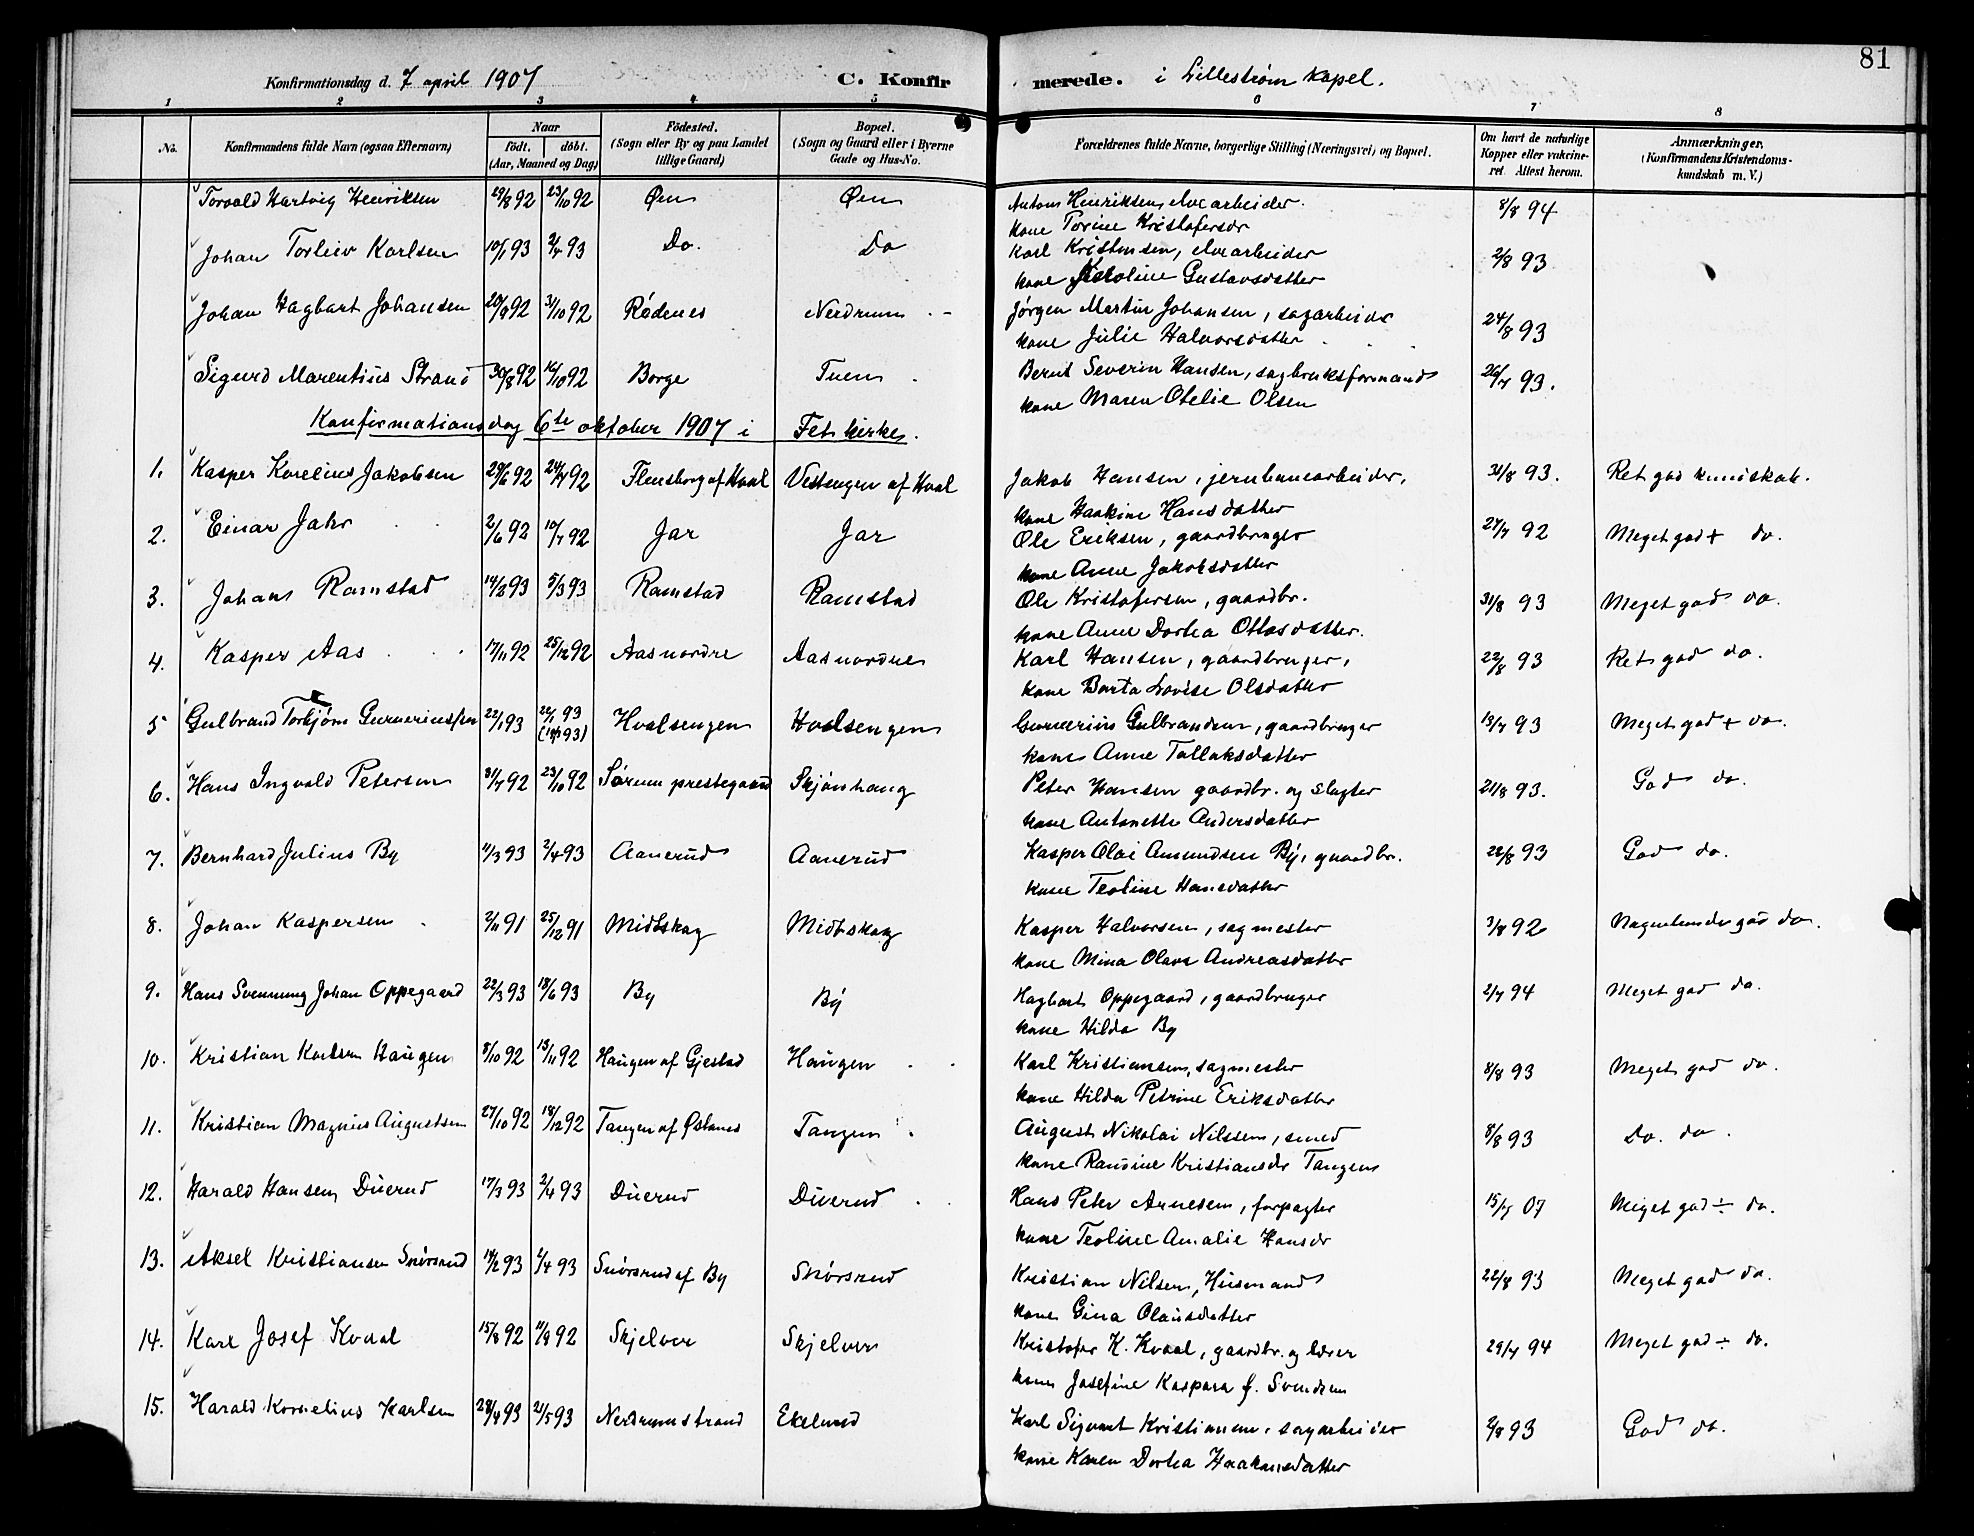 81
Konfirmationsdag d. 7 april 1907 C. Konfirmerede. i Lillestrøm kapel.
1 2 3 4 5 6 7 8
No. Konfirmandens fulde Navn (ogsaa Efternavn) Naar født. døbt. (Aar, Maaned og Dag) Fødested. (Sogn eller By og paa Landet tillige Gaard) Bopæl. (Sogn og Gaard eller i Byerne Gade og Hus-No. Forældrenes fulde Navne, borgerlige Stilling (Næringsvei) og Bopæl. Om havt de naturlige Kopper eller vakcineret. Attest herom. Anmærkninger. (Konfirmandens Kristendomskundskab m. V.)
Torvald Hartvig Henriksen 29/8 92 23/10 92 Øen Øen Anton Henriksen, elvearbeider. 8/8 94
kone Torine Kristofersdr
Johan Torleiv Karlsen 10/1 93 2/4 93 Do. Do Karl Kristensen, elvearbeider 2/8 93
kone Karoline Gustavsdatter
Johan Hagbart Johansen 20/9 92 31/10 92 Rødenes Nerdrum Jørgen Martin Johansen, sagarbeider 24/8 93
kone Julie Halvorsdatter
Sigurd Marentius Strand 30/8 92 16/10 92 Borge Tuen Bernt Severin Hansen, sagbruksformand 26/7 93.
kone Maren Otelie Olsen
Konfirmationsdag 6te oktober 1907 i Fet kirke.
1. Kasper Korelius Jakobsen 29/6 92 24/7 92 Flensborg af Hval Vestengen af Hval Jakob Hansen, jernbanearbeider, 31/8 93. Ret god kundskab.
kone Haakine Hansdatter
2. Einar Jahr 2/6 92 10/7 92 Jar Jar Ole Eriksen, gaardbruger 27/7 92 Meget god + do.
kone Anne Jakobsdatter
3. Johans Ramstad 14/2 93 5/3 93 Ramstad Ramstad Ole Kristofersen, gaardbr. 31/8 93 Meget god do.
kone Anne Dortea Ottosdatter.
4. Kasper Aas 17/11 92 25/12 92 Aas nordre Aas nordre Karl Hansen, gaardbruger, 22/8 93 Ret god do.
kone Berta Lovise Olsdatter
5 Gulbrand Torbjørn Gunneriussen 22/1 93 22/1 93 Hvalsengen Hvalsengen Gunnerius Gulbrandsen, gaardbruger 13/7 93 Meget god + do.
kone Anne Tollaksdatter
6. Hans Ingvald Petersen 31/7 92 23/10 92 Sørum prestegaard Skjønhaug Peter Hansen gaardbr. og slagter 21/8 93. God do.
kone Antonette Andersdatter
7. Bernhard Julius By 11/3 93 2/4 93 Aanerud Aanerud Kasper Olai Amundsen By, gaardbr. 22/8 93 God do.
kone Teoline Hansdatter
8. Johan Kaspersen 2/11 91 25/12 91 Midtskog Midtskog Kasper Halvorsen, sagmester 3/8 92 Nogenlunde god do.
kone Mina Olava Andreasdatter
9. Hans Svenning Johan Oppegaard 22/3 93 18/6 93 By By Hagbart Oppegaard, gaardbruger 2/7 94 Meget god do.
kone Hilda By
10. Kristian Karlsen Haugen 8/10 92 13/11 92 Haugen af Gjestad Haugen Karl Kristiansen, sagmester 8/8 93 Meget god do.
kone Hilda Petrine Eriksdatter
11. Kristian Magnus Augustsen 27/10 92 18/12 92 Tangen af Østenes Tangen August Nikolai Nilssen, smed 8/8 93 Do. do.
kone Randine Kristiansdr Tangen
12. Harald Hansen Duerud 17/3 93 2/4 93 Duerud Duerud Hans Peter Arnesen, forpagter 15/5 07 Meget god ÷ do.
kone Teoline Amalie Hansdr
13. Aksel Kristiansen Snørsrud 14/2 93 2/4 93 Snørsrud af By Snørsrud Kristian Nilsen, Husmand 22/8 93 Meget god do.
kone Gina Olausdatter
14. Karl Josef Kvaal 15/8 92 11/9 92 Skjelver Skjelver Kristofer K. Kvaal, gaardbr. og lærer 29/7 94 Meget god ÷ do.
kone Josefine Kaspara f. Svendsen
15. Harald Kornelius Karlsen 28/4 93 21/5 93 Nerdrumstrand Ekelund Karl Sigvart Kristiansen, sagarbeider 2/8 93 God do.
kone Karen Dortea Haakonsdatter